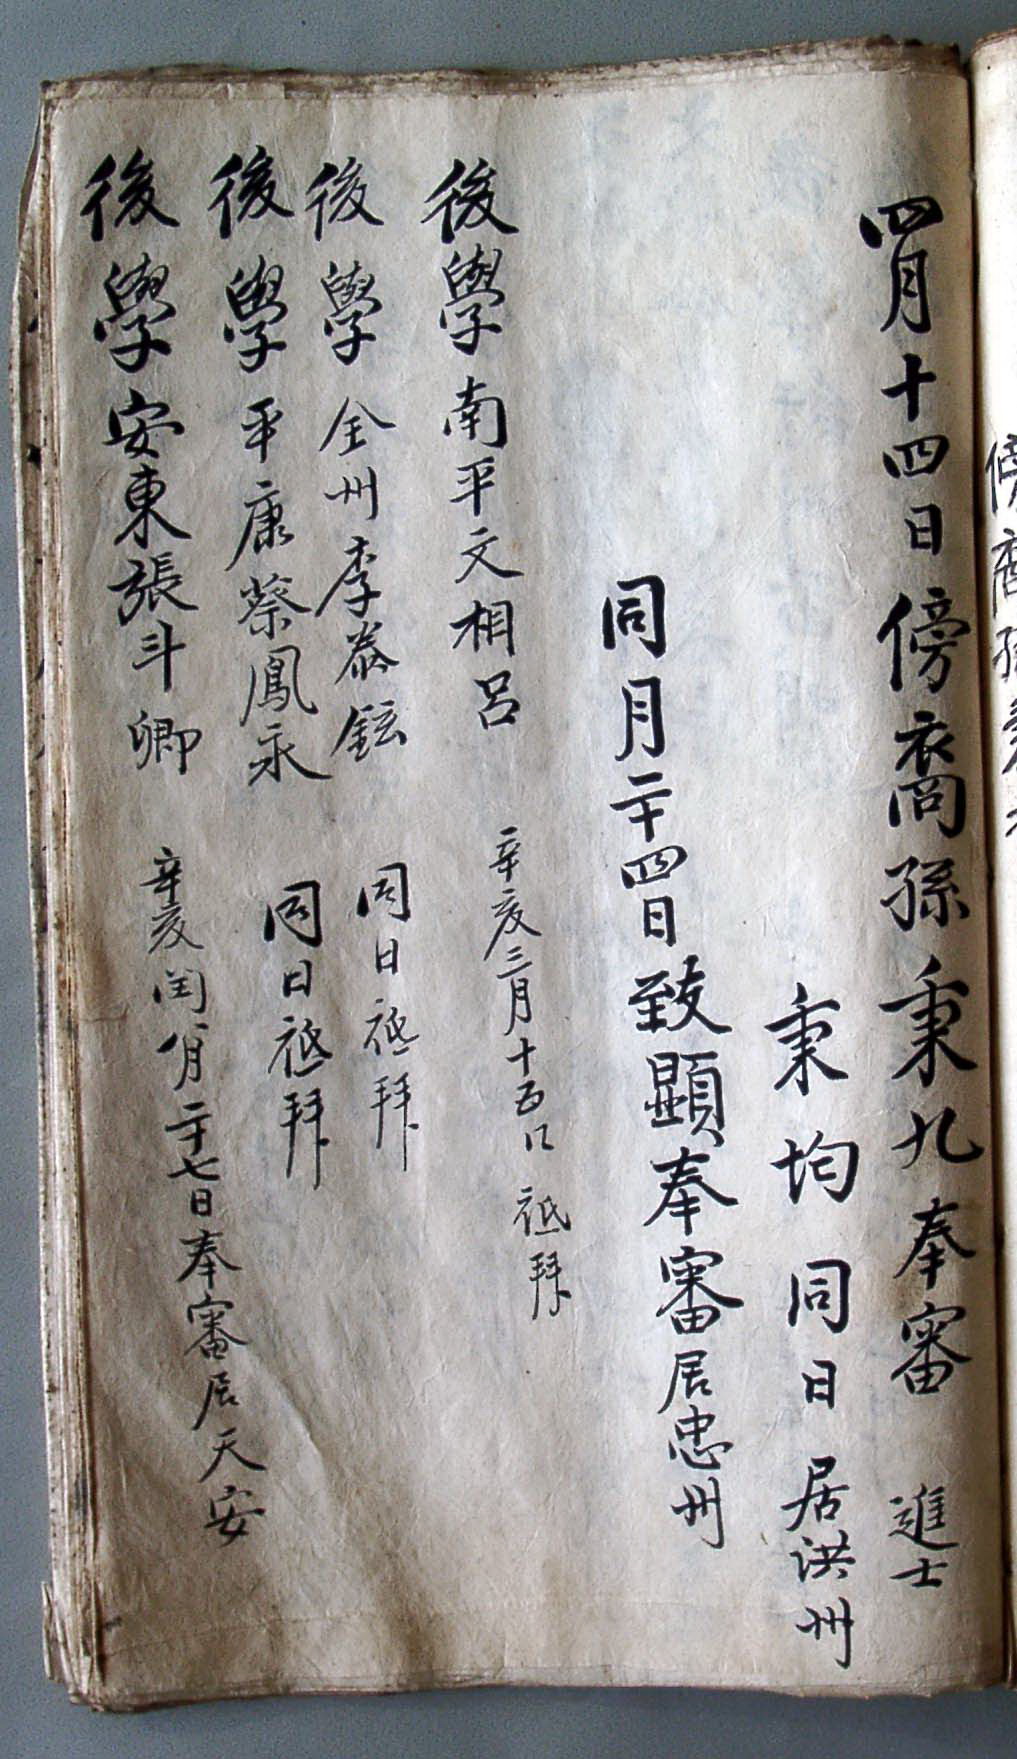 傍裔孫
四月十四日傍裔孫秉九奉審 進士
秉均同日居洪州
同月二十四日致顯奉審居忠州
後學南平文相呂 辛亥三月十五日 祗拜
後學全州李泰鉉 同日祗拜
後學平康蔡鳳永 同日祗拜
後學安東張斗卿 辛亥閏八月二十七日奉審居天安